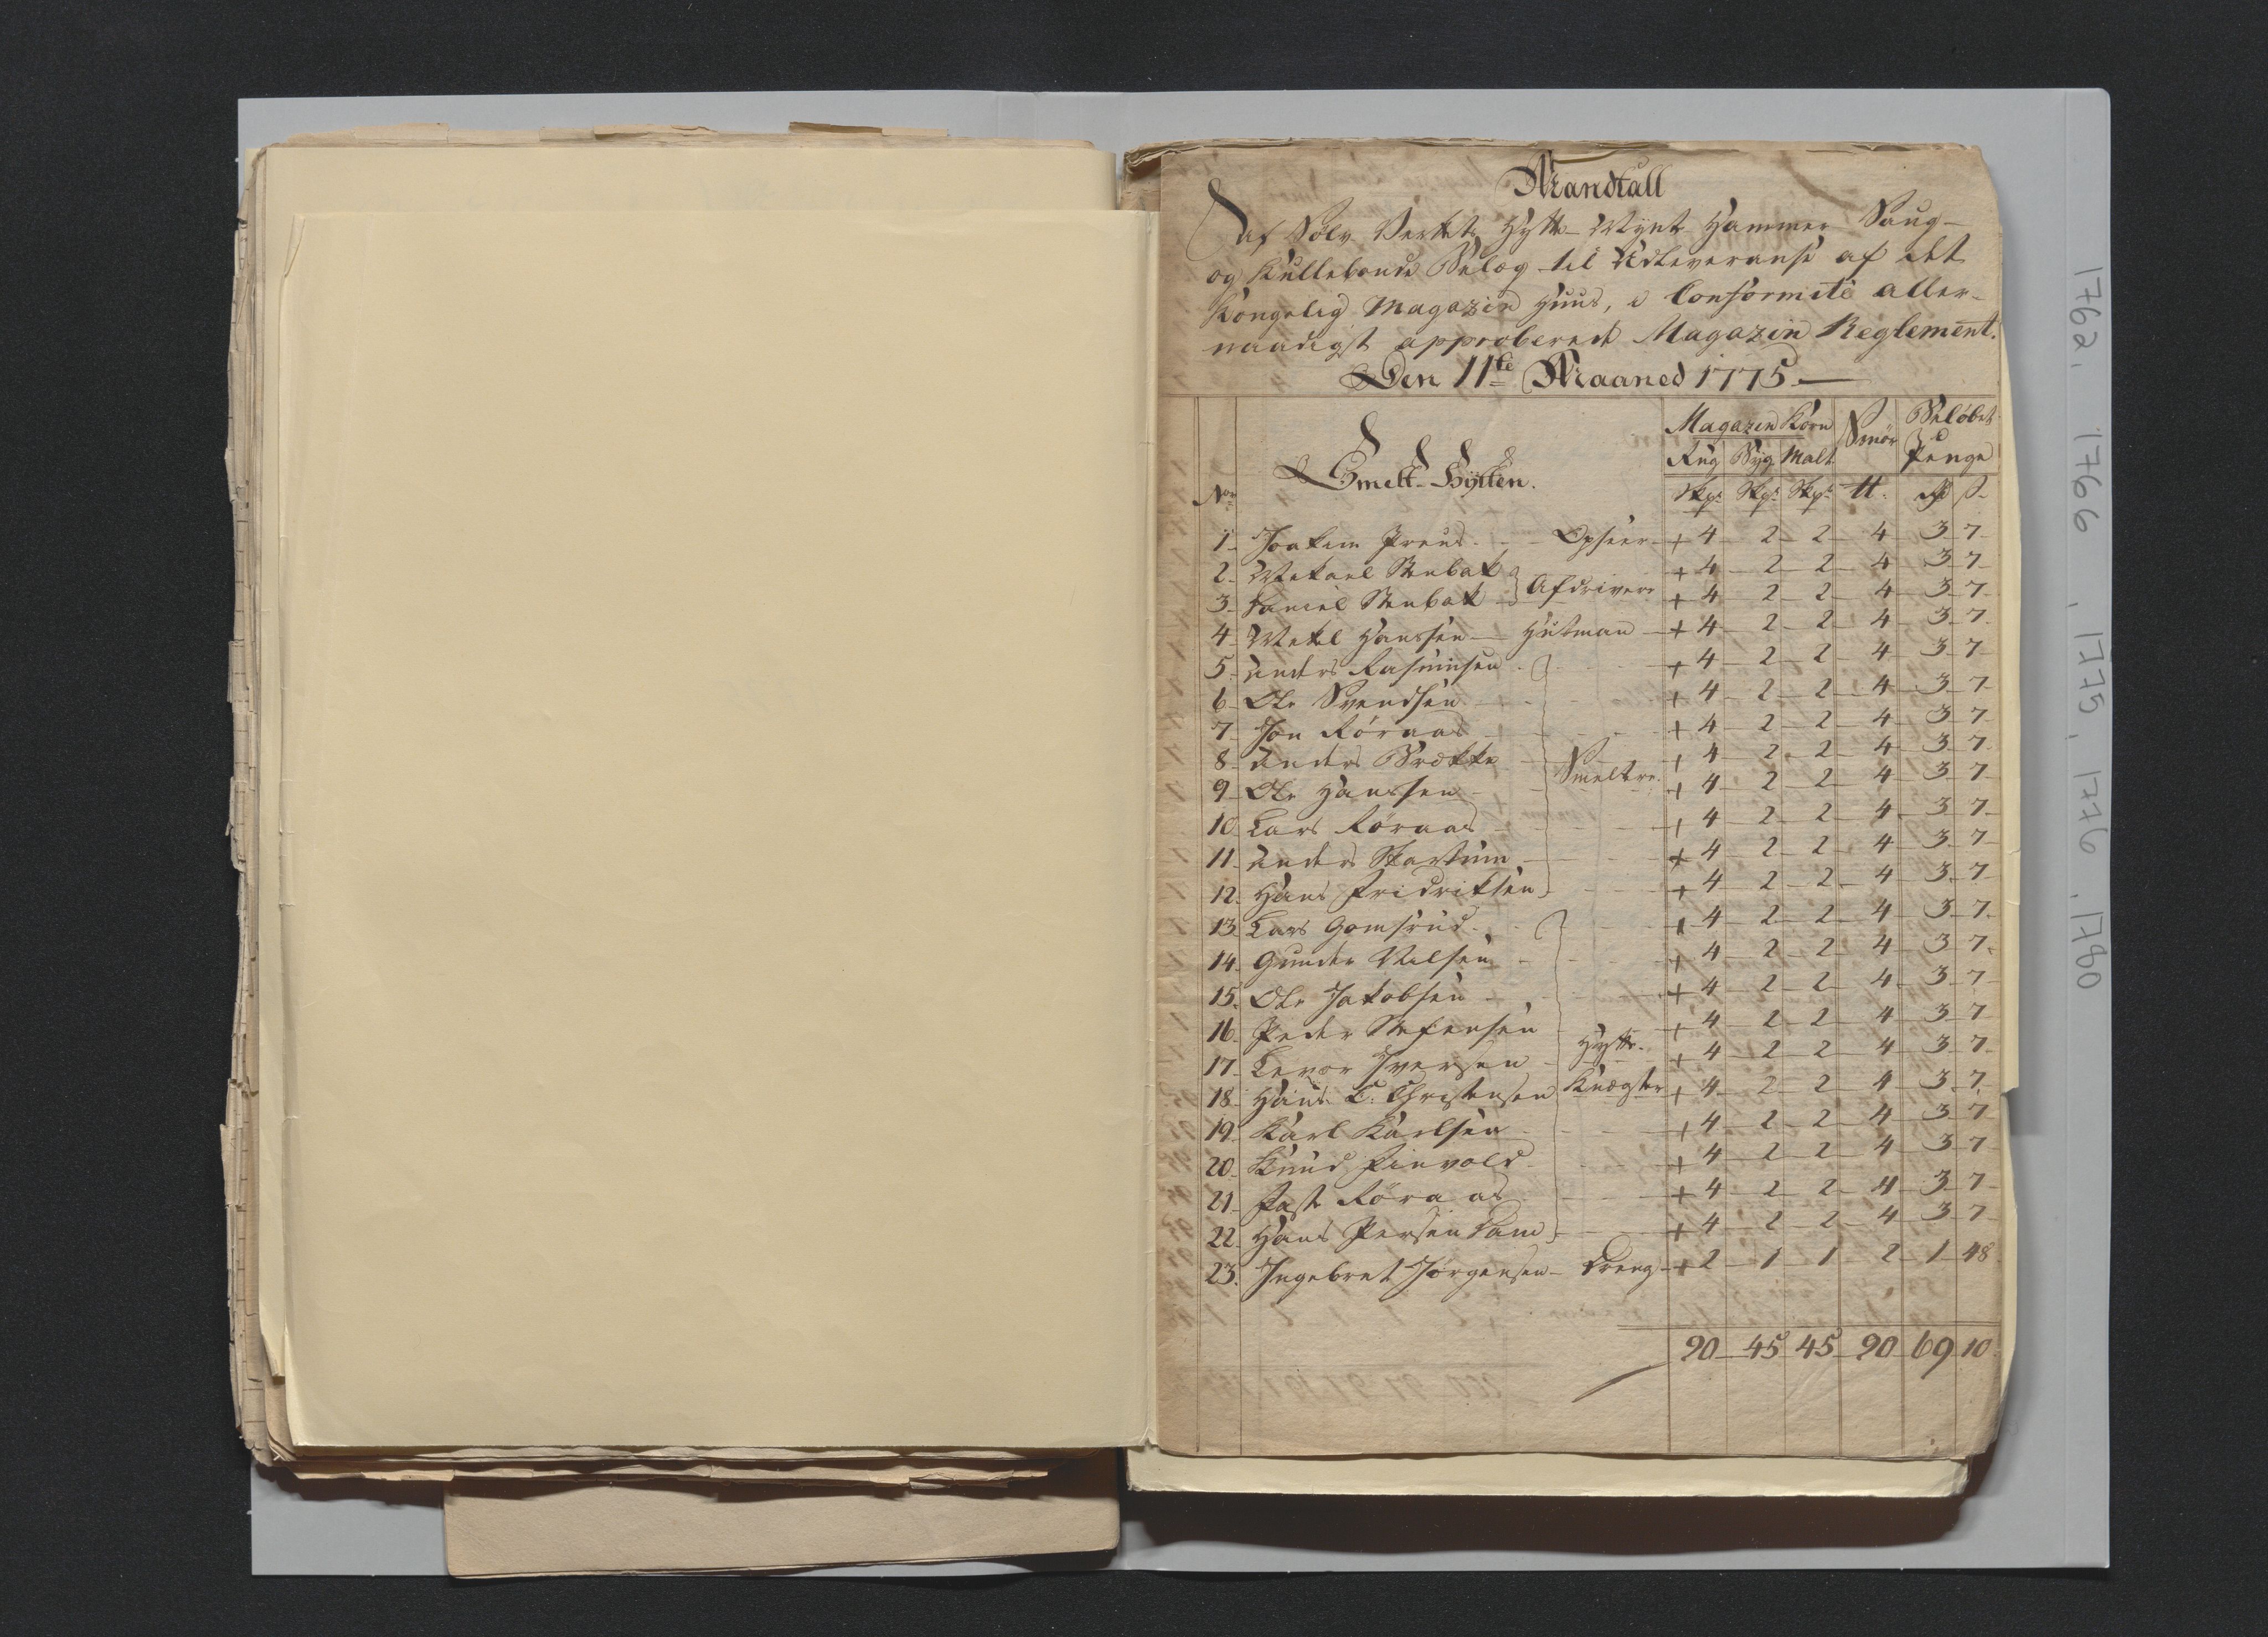 Mandtall
af Sølv Verkets Hytte Mynt Hammer Saug-
og Kullebonde Belæg til Udleveranse af det
Kongelig Magazin Huus, i Conformite aller-
naadigst approberede Magazin Reglement.
Den 11te Maaned 1775.
Magazin Korn Smør Beløbet i Penge
Smelt-Hytten.
Rug Byg Malt
Nor Skpr Skpr Skpr ℔. Rd ß
1 Joakim Preus Opseer + 4 2 2 4 3 7
2 Mekael Stenbak } Afdrivere + 4 2 2 4 3 7
3 Daniel Stenbak + 4 2 2 4 3 7
4 Mekel Hanssen Hutman + 4 2 2 4 3 7
5 Anders Rasmusen + 4 2 2 4 3 7
6 Ole Svendsen + 4 2 2 4 3 7
7 Jon Røraas + 4 2 2 4 3 7
8 Anders Brække Smeltere + 4 2 2 4 3 7
9 Ole Hanssen + 4 2 2 4 3 7
10 Lars Røraas + 4 2 2 4 3 7
11 Anders Skartum + 4 2 2 4 3 7
12 Hans Fridriksen + 4 2 2 4 3 7
13 Lars Gomsrud + 4 2 2 4 3 7
14 Gunder Nilsen + 4 2 2 4 3 7
15 Ole Jakobsen + 4 2 2 4 3 7
16 Peder Stefensen + 4 2 2 4 3 7
17 Levor Iversen Hytte- + 4 2 2 4 3 7
18 Hans C. Christensen Knægter + 4 2 2 4 3 7
19 Karl Karlsen + 4 2 2 4 3 7
20 Knud + 4 2 2 4 3 7
21 Røraas + 4 2 2 4 3 7
22 Hans Persen Dam + 4 2 2 4 3 7
23. Ingebret Jørgensen Dreng + 2 1 1 2 1 48
90 45 45 90 69 10
1762. 1766. 1775, 1776. 1780